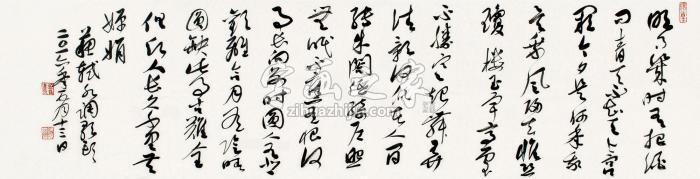 明月几时有把酒
问青天不知天上宫
阙今夕是何年我
欲乘风归去惟恐
琼楼玉宇高处
不胜寒起舞弄
清影何似在人间
转朱阁低绮户照
无眠不应有恨何
事长向别时圆人有悲
欢离合月有阴晴
圆缺此事古难全
但愿人长久千里共
婵娟
苏轼水调歌头
二〇一六年五月十三日
字画之家
www.zihuazhijia.com